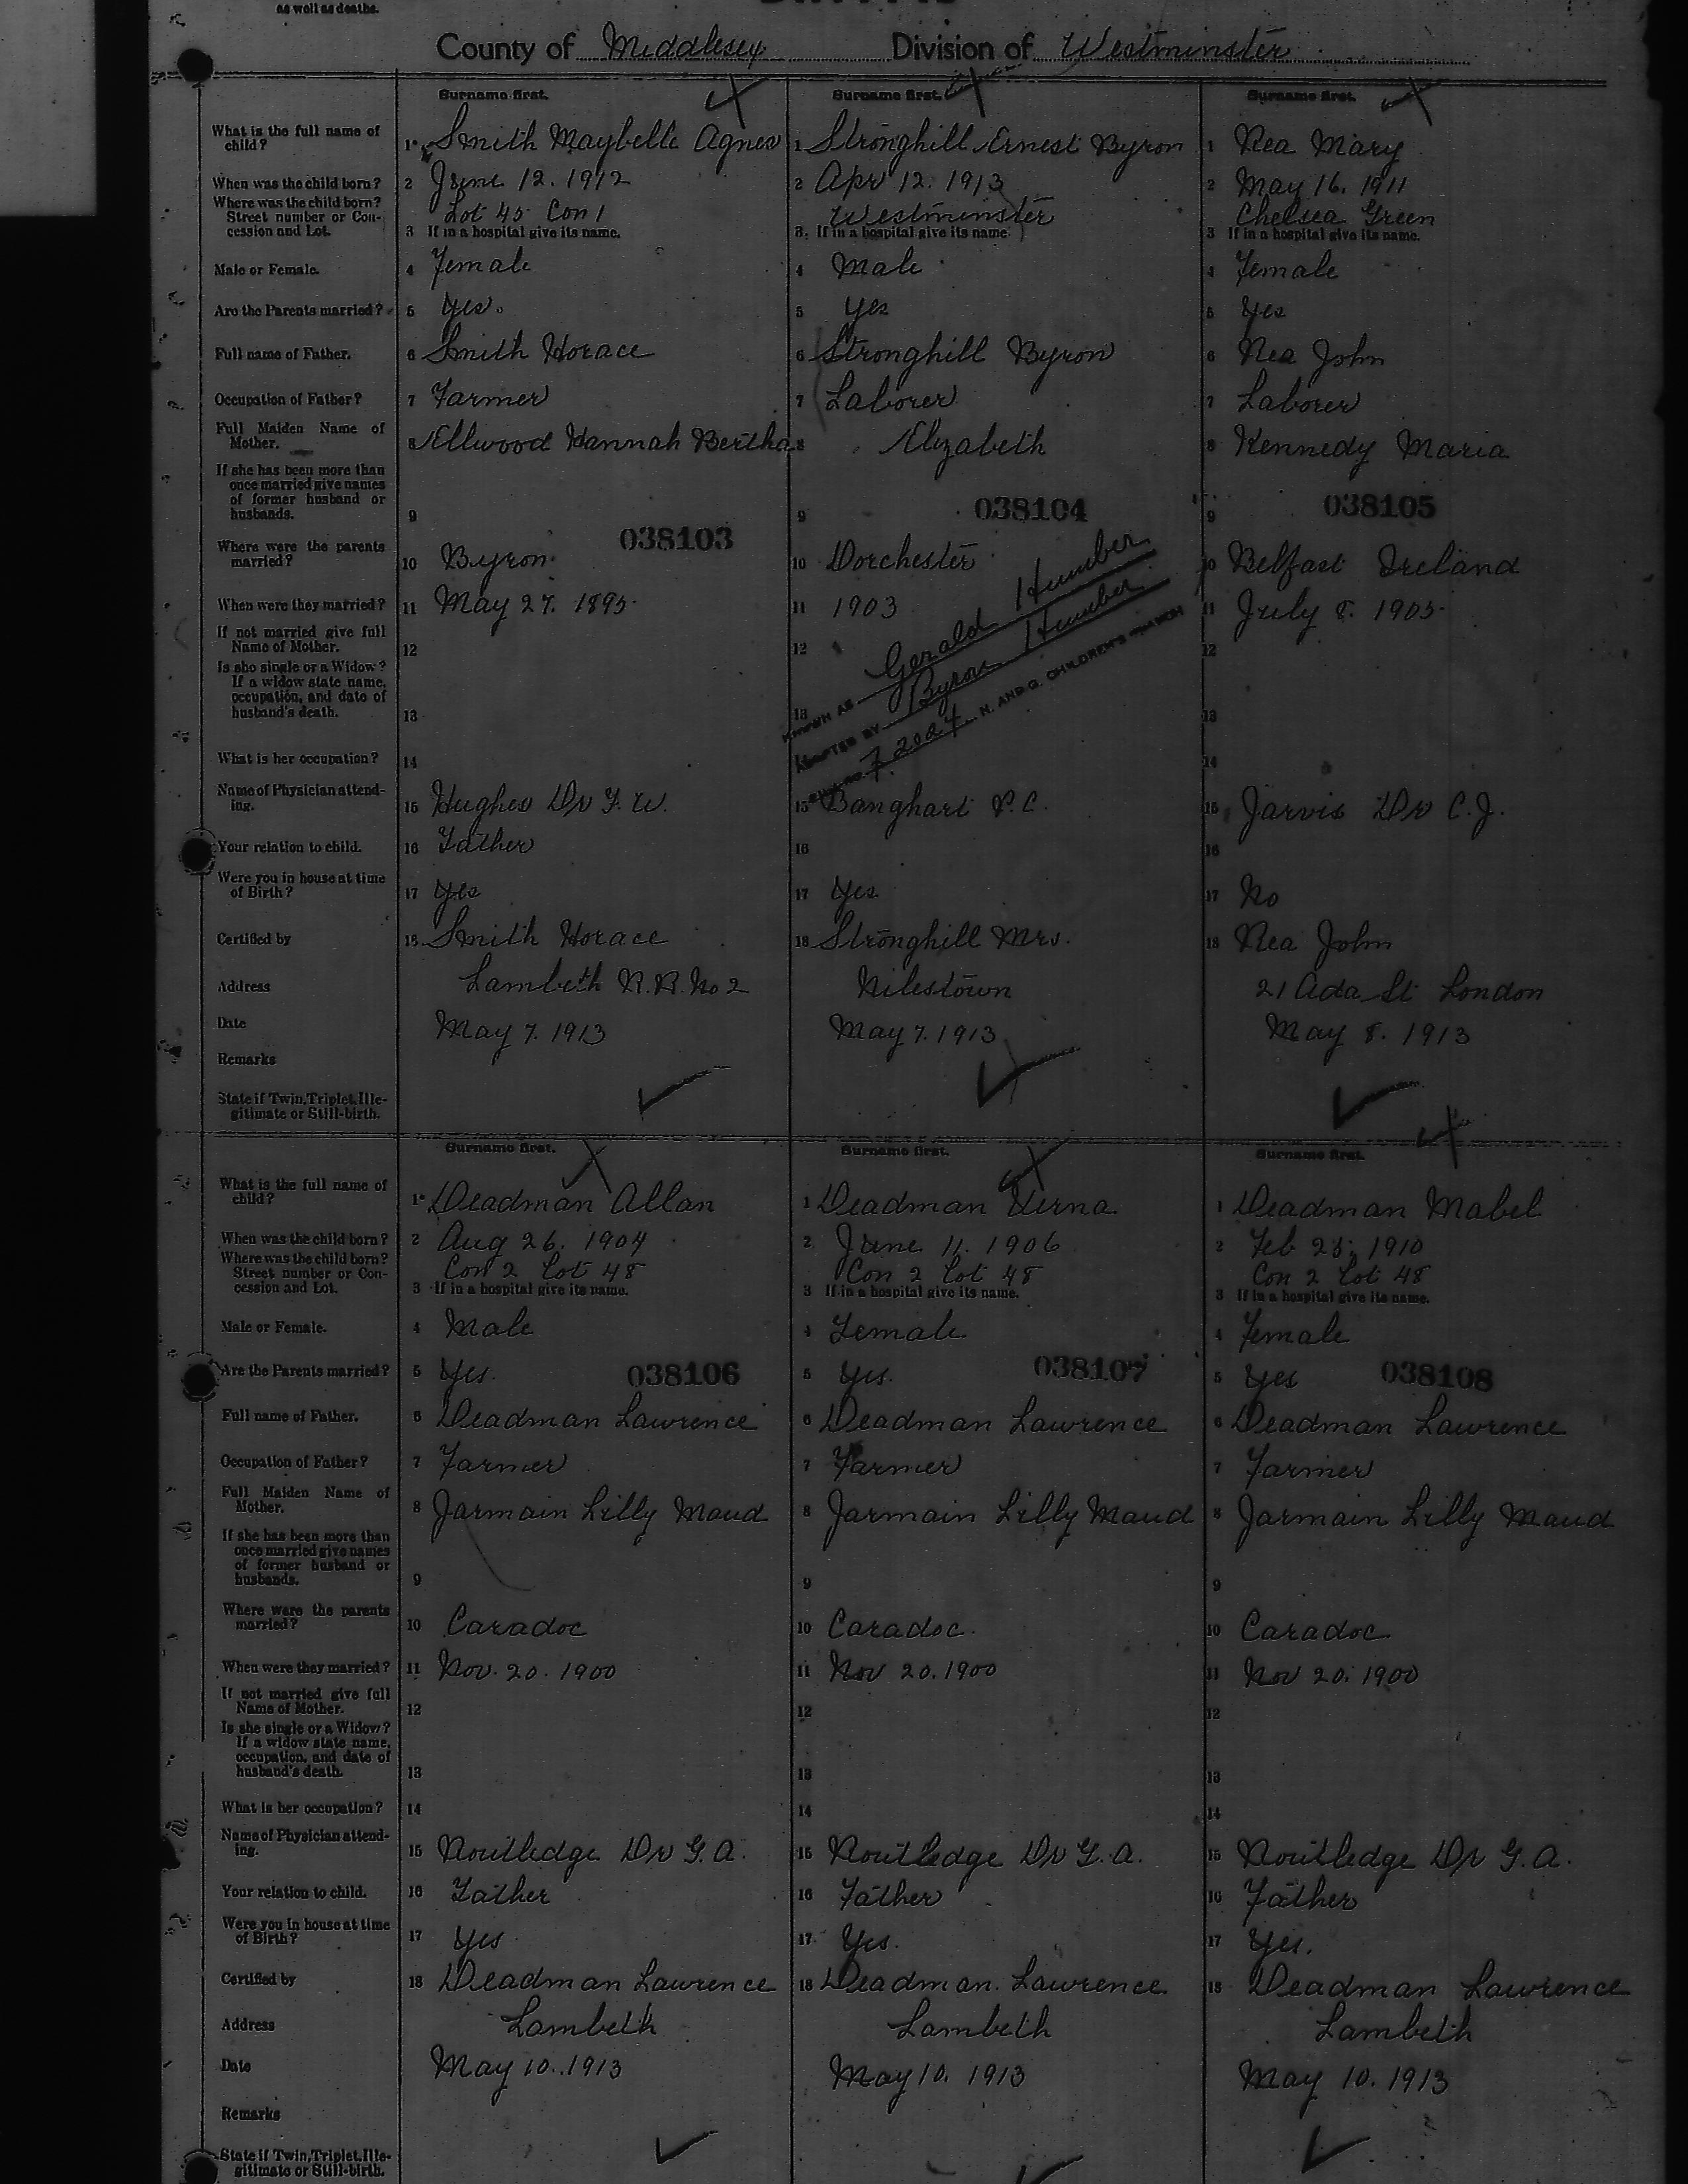 as well as deaths.
County of Middlesex Division of Westminster
Surname first. Surname first. Surname first.
What is the full name of child? 1 Smith Maybelle Agnes 1 Stronghill Ernest Byron 1 Rea Mary
When was the child born? 2 June 12. 1912 2 Apr 12. 1913 2 May 16. 1911
Where was the child born? Street number or Concession and Lot. Lot 45 Con 1 Westminster Chelsea Green
3 If in a hospital give its name. 3. If in a hospital give its name 3 If in a hospital give its name.
Male or Female. 4 Female 4 Male 4 Female
Are the Parents married? 5 Yes. 5 Yes 5 Yes
Full name of Father. 6 Smith Horace 6 Stronghill Byron 6 Rea John
Occupation of Father? 7 Farmer 7 Laborer 7 Laborer
Full Maiden Name of Mother. 8 Ellwood Hannah Bertha 8 Elizabeth 8 Kennedy Maria
If she has been more than once married give names of former husband or husbands. 9 038103 9 038104 9 038105
Where were the parents married? 10 Byron 10 Dorchester 10 Belfast Ireland
When were they married? 11 May 27. 1895 11 1903 11 July 8. 1905
If not married give full Name of Mother. 12 12 12
Is she single or a Widow? If a widow state name, occupation, and date of husband's death. 13 13 13
KNOWN AS Gerald Humber
ADOPTED BY Byron Humber
7 2024 N. AND G. CHILDREN'S BRANCH
What is her occupation? 14 14
Name of Physician attending. 15 Hughes Dr F. W. 15 Banghart P. C. 15 Jarvis Dr C. J.
Your relation to child. 16 Father 16 16
Were you in house at time of Birth? 17 Yes 17 Yes 17 No
Certified by 18 Smith Horace 18 Stronghill Mrs. 18 Rea John
Address Lambeth R. R. No 2 Nilestown 21 Ada St London
Date May 7. 1913 May 7. 1913 May 8. 1913
Remarks
State if Twin, Triplet, Illegitimate or Still-birth.
Surname first. Surname first. Surname first.
What is the full name of child? 1 Deadman Allan 1 Deadman Verna 1 Deadman Mabel
When was the child born? 2 Aug 26. 1904 2 June 11. 1906 2 Feb 1910
Where was the child born? Street number or Concession and Lot. Con 2 Lot 48 Con 2 Lot 48 Con 2 Lot 48
3 If in a hospital give its name. 3 If in a hospital give its name. 3 If in a hospital give its name.
Male or Female. 4 Male 4 Female 4 Female
Are the Parents married? 5 Yes. 038106 5 Yes. 038107 5 Yes 038108
Full name of Father. 6 Deadman Lawrence 6 Deadman Lawrence 6 Deadman Lawrence
Occupation of Father? 7 Farmer 7 Farmer 7 Farmer
Full Maiden Name of Mother. 8 Jarmain Lilly Maud 8 Jarmain Lilly Maud 8 Jarmain Lilly Maud
If she has been more than once married give names of former husband or husbands. 9 9 9
Where were the parents married? 10 Caradoc 10 Caradoc. 10 Caradoc
When were they married? 11 Nov. 20. 1900 11 Nov 20. 1900 11 Nov 20. 1900
If not married give full Name of Mother. 12 12 12
Is she single or a Widow? If a widow state name, occupation, and date of husband's death. 13 13 13
What is her occupation? 14 14 14
Name of Physician attending. 15 Routledge Dr G. A. 15 Routledge Dr G. A. 15 Routledge Dr G. A.
Your relation to child. 16 Father 16 Father 16 Father
Were you in house at time of Birth? 17 Yes 17 Yes. 17 Yes.
Certified by 18 Deadman Lawrence 18 Deadman. Lawrence 18 Deadman Lawrence
Address Lambeth Lambeth Lambeth
Date May 10. 1913 May 10. 1913 May 10. 1913
Remarks
State if Twin, Triplet, Illegitimate or Still-birth.